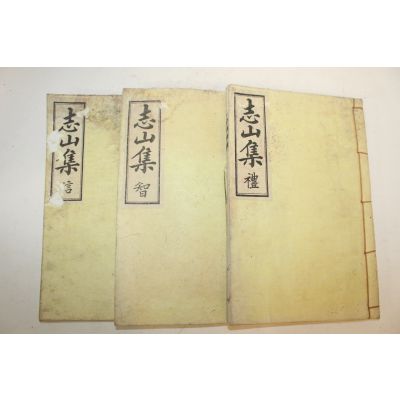 志山集 禮
志山集 智
志山集 信